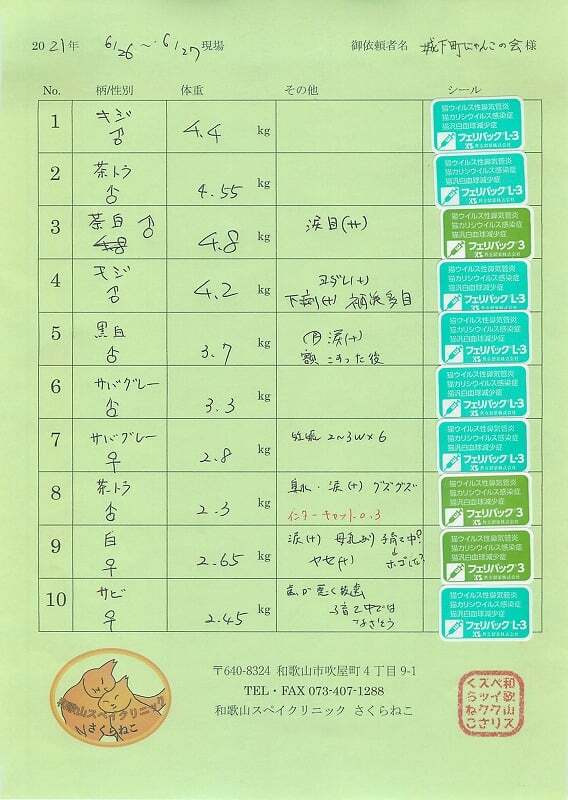 2021年 6/26～6/27 現場 御依頼者名 城下町にゃんこの会 様
No. 柄/性別 体重 その他 シール
1 キジ ♂ 4.4 kg
猫ウイルス性鼻気管炎
猫カリシウイルス感染症
猫汎白血球減少症
フェリバック L-3
共立製薬株式会社
2 茶トラ ♂ 4.55 kg
猫ウイルス性鼻気管炎
猫カリシウイルス感染症
猫汎白血球減少症
フェリバック L-3
共立製薬株式会社
3 茶白 ♂ 4.8 kg 涙目(++)
4.8
猫ウイルス性鼻気管炎
猫カリシウイルス感染症
猫汎白血球減少症
フェリバック 3
共立製薬株式会社
4 キジ ♂ 4.2 kg ヨダレ(+)
下痢(+) 補液多目
猫ウイルス性鼻気管炎
猫カリシウイルス感染症
猫汎白血球減少症
フェリバック L-3
共立製薬株式会社
5 黒白 ♂ 3.7 kg 涙(+)
額 こすった後
猫ウイルス性鼻気管炎
猫カリシウイルス感染症
猫汎白血球減少症
フェリバック L-3
共立製薬株式会社
6 サバグレー ♂ 3.3 kg
猫ウイルス性鼻気管炎
猫カリシウイルス感染症
猫汎白血球減少症
フェリバック L-3
共立製薬株式会社
7 サバグレー ♀ 2.8 kg 妊娠 2～3W×6
猫ウイルス性鼻気管炎
猫カリシウイルス感染症
猫汎白血球減少症
フェリバック L-3
共立製薬株式会社
8 茶トラ ♂ 2.3 kg 鼻水・涙(+) グズグズ
インターキャット0.3
猫ウイルス性鼻気管炎
猫カリシウイルス感染症
猫汎白血球減少症
フェリバック 3
共立製薬株式会社
9 白 ♀ 2.65 kg 涙(+) 母乳あり 子育て中?
ヤセ(+) ホゴした?
猫ウイルス性鼻気管炎
猫カリシウイルス感染症
猫汎白血球減少症
フェリバック 3
共立製薬株式会社
10 サビ ♀ 2.45 kg 歯が悪く抜歯
子育て中では
なさそう
猫ウイルス性鼻気管炎
猫カリシウイルス感染症
猫汎白血球減少症
フェリバック L-3
共立製薬株式会社
和歌山スペイクリニック
さくらねこ
〒640-8324 和歌山市吹屋町4丁目9-1
TEL・FAX 073-407-1288
和歌山スペイクリニック さくらねこ
和歌山ス
ペイクリ
ニックさ
くらねこ